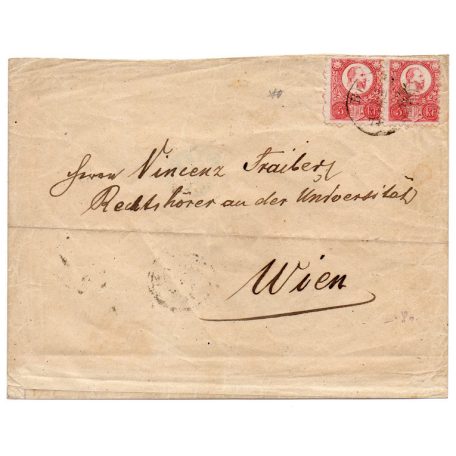 Herrn Vincenz Traiberg
Rechtshörer an der Universität
Wien
5 KR
5 KR